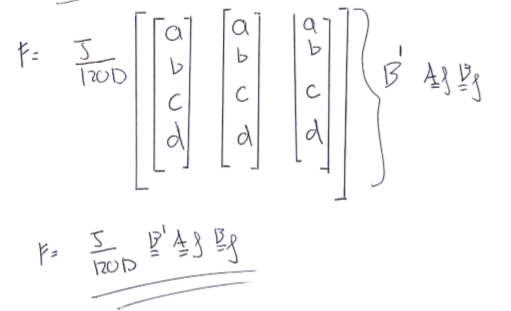 F= J/120D [[a b c d] [a b c d] [a b c d]] } B' Af Bf
F= J/120D B' Af Bf